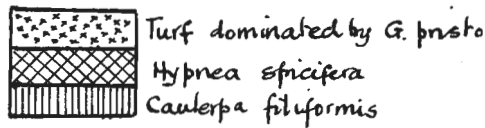 Turf dominated by G. pristo
Hypnea spicifera
Caulerpa filiformis